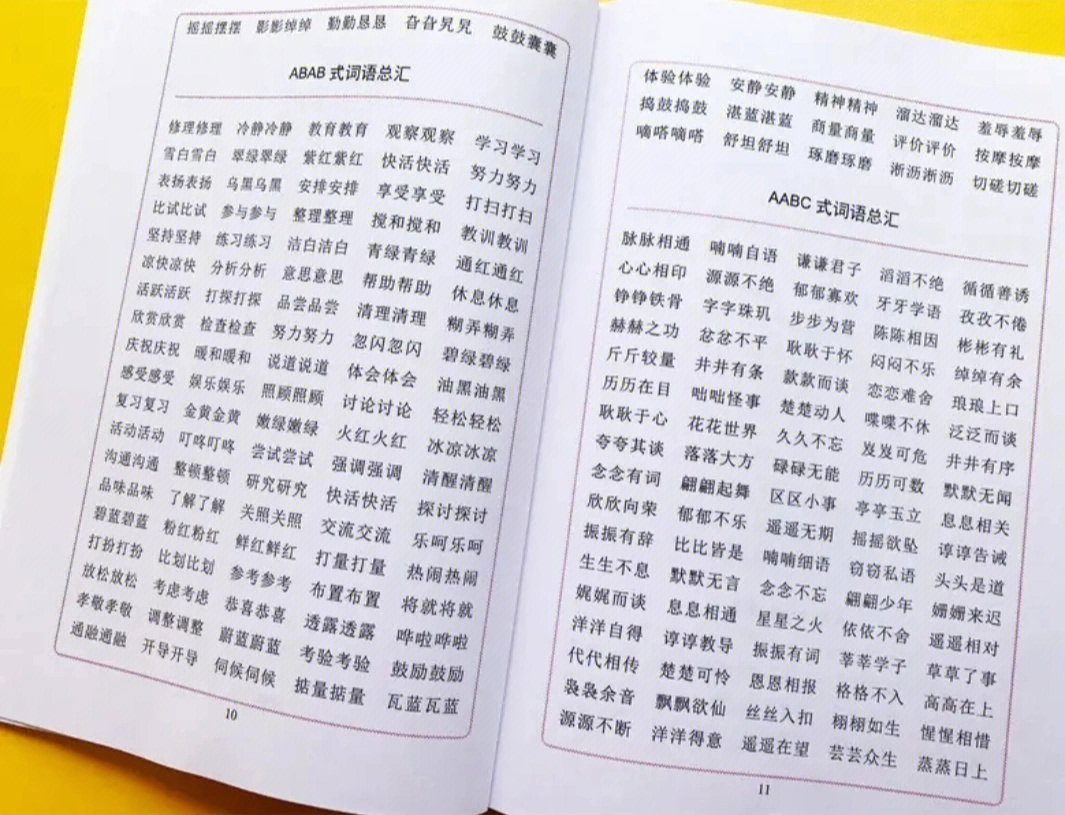 摇摇摆摆 影影绰绰 勤勤恳恳 旮旮旯旯 鼓鼓囊囊
ABAB 式词语总汇
修理修理 冷静冷静 教育教育 观察观察 学习学习
雪白雪白 翠绿翠绿 紫红紫红 快活快活 努力努力
表扬表扬 乌黑乌黑 安排安排 享受享受 打扫打扫
比试比试 参与参与 整理整理 搅和搅和 教训教训
坚持坚持 练习练习 洁白洁白 青绿青绿 通红通红
凉快凉快 分析分析 意思意思 帮助帮助 休息休息
活跃活跃 打探打探 品尝品尝 清理清理 糊弄糊弄
欣赏欣赏 检查检查 努力努力 忽闪忽闪 碧绿碧绿
庆祝庆祝 暖和暖和 说道说道 体会体会 油黑油黑
感受感受 娱乐娱乐 照顾照顾 讨论讨论 轻松轻松
复习复习 金黄金黄 嫩绿嫩绿 火红火红 冰凉冰凉
活动活动 叮咚叮咚 尝试尝试 强调强调 清醒清醒
沟通沟通 整顿整顿 研究研究 快活快活 探讨探讨
品味品味 了解了解 关照关照 交流交流 乐呵乐呵
碧蓝碧蓝 粉红粉红 鲜红鲜红 打量打量 热闹热闹
打扮打扮 比划比划 参考参考 布置布置 将就将就
放松放松 考虑考虑 恭喜恭喜 透露透露 哗啦哗啦
孝敬孝敬 调整调整 蔚蓝蔚蓝 考验考验 鼓励鼓励
通融通融 开导开导 伺候伺候 掂量掂量 瓦蓝瓦蓝
10
体验体验 安静安静 精神精神 溜达溜达 羞辱羞辱
捣鼓捣鼓 湛蓝湛蓝 商量商量 评价评价 按摩按摩
嘀嗒嘀嗒 舒坦舒坦 琢磨琢磨 淅沥淅沥 切磋切磋
AABC 式词语总汇
脉脉相通 喃喃自语 谦谦君子 滔滔不绝 循循善诱
心心相印 源源不绝 郁郁寡欢 牙牙学语 孜孜不倦
铮铮铁骨 字字珠玑 步步为营 陈陈相因 彬彬有礼
赫赫之功 忿忿不平 耿耿于怀 闷闷不乐 绰绰有余
斤斤较量 井井有条 款款而谈 恋恋难舍 琅琅上口
历历在目 咄咄怪事 楚楚动人 喋喋不休 泛泛而谈
耿耿于心 花花世界 久久不忘 岌岌可危 井井有序
夸夸其谈 落落大方 碌碌无能 历历可数 默默无闻
念念有词 翩翩起舞 区区小事 亭亭玉立 息息相关
欣欣向荣 郁郁不乐 遥遥无期 摇摇欲坠 谆谆告诫
振振有辞 比比皆是 喃喃细语 窃窃私语 头头是道
生生不息 默默无言 念念不忘 翩翩少年 姗姗来迟
娓娓而谈 息息相通 星星之火 依依不舍 遥遥相对
洋洋自得 谆谆教导 振振有词 莘莘学子 草草了事
代代相传 楚楚可怜 恩恩相报 格格不入 高高在上
袅袅余音 飘飘欲仙 丝丝入扣 栩栩如生 惺惺相惜
源源不断 洋洋得意 遥遥在望 芸芸众生 蒸蒸日上
11